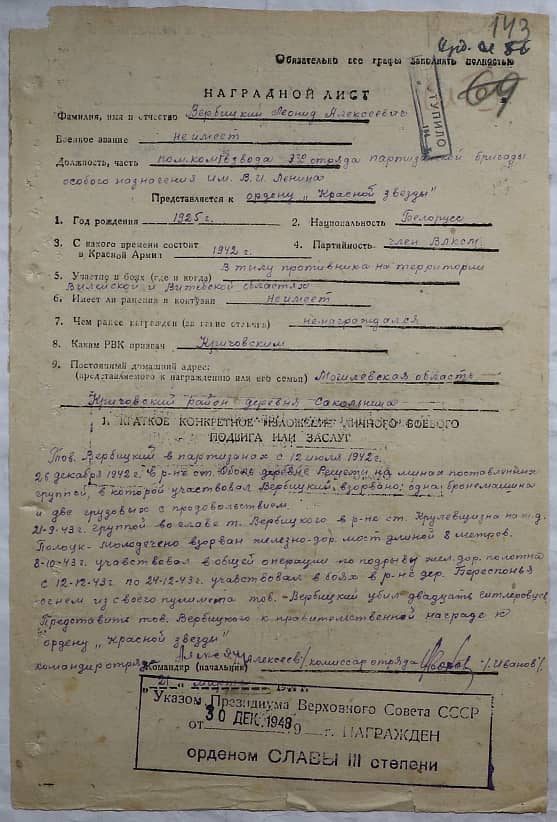 143
Обязательно все графы заполнять полностью
69
ПОСТУПИЛО
НАГРАДНОЙ ЛИСТ
Фамилия, имя и отчество Вербицкий Леонид Алексеевич
Военное звание не имеет
Должность, часть пом.ком. взвода отряда партизанской бригады
особого назначения им. В.И. Ленина
Представляется к ордену „Красной звезды"
1. Год рождения 1925 г. 2. Национальность Белорусс
3. С какого времени состоит в Красной Армии 1942 г. 4. Партийность член ВЛКСМ
5. Участие в боях (где и когда) В тылу противника на территории
Вилейской и Витебской областях
6. Имеет ли ранения и контузии не имеет
7. Чем ранее награжден (за какие отличия) ненаграждался
8. Каким РВК призван Кричовским
9. Постоянный домашний адрес:
(представляемого к награждению или его семьи) Могилевская область
Кричовский район деревня Сакольница
I. КРАТКОЕ КОНКРЕТНОЕ ИЗЛОЖЕНИЕ ЛИЧНОГО БОЕВОГО
ПОДВИГА ИЛИ ЗАСЛУГ
Тов. Вербицкий в партизанах с 12 июля 1942г.
26 декабря 1942г. в р-не ст. Оболь деревне на минах поставленных
группой, в которой участвовал Вербицкий, взорвано: одна бронемашина
и две грузовых с прозовольствием.
21-9-43г. группой во главе т. Вербицкого в р-не ст. Крулевщизна на ж.д.
Полоцк - Молодечено взорван железно-дор. мост длиной 8 метров.
8-10-43г. учавствовал в общей операции по подрыву жел.дор. полотна
с 12-12-43г по 24-12-43г. учавствовал в боях в р-не дер. Береспонья
огнем из своего пулимета тов. Вербицкий убил двадцать гитлеровцев
Представить тов. Вербицкого к правительственной награде к
ордену „Красной звезды"
командир отряда /Алексеев/ комиссар отряда /Иванов/.
Командир (начальник)
21 „ марта
„Указом Президиума Верховного Совета СССР
от 30 ДЕК. 1948 г. НАГРАЖДЕН
орденом СЛАВЫ III степени